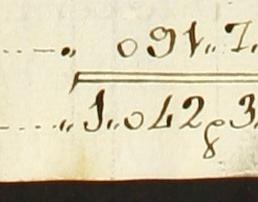 ---- „ 091„7.
---- „1„042 8 3